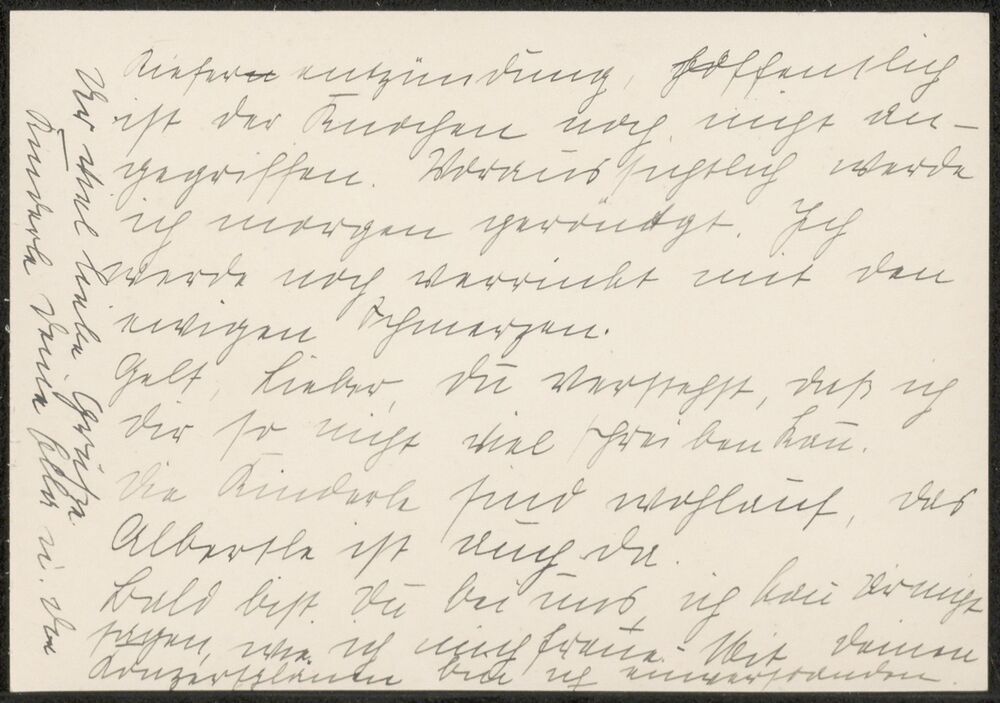 Kieferentzündung, hoffentlich
ist der Knochen noch nicht an-
gegriffen. Voraussichtlich werde
ich morgen geröntgt. Ich
werde noch verrückt mit den
ewigen Schmerzen.
Gelt, Lieber, du verstehst, daß ich
dir so nicht viel schreiben kan̄.
Die Kinderle sind wohlauf, das
Albertle ist auch da.
Bald bist du bei uns, ich kan̄ dir nicht
sagen, wie ich mich freue. Mit deinen
Konzertplänen bin ich einverstanden.
Dir viel liebe Grüße
Deine Ella u. die
Kinderle